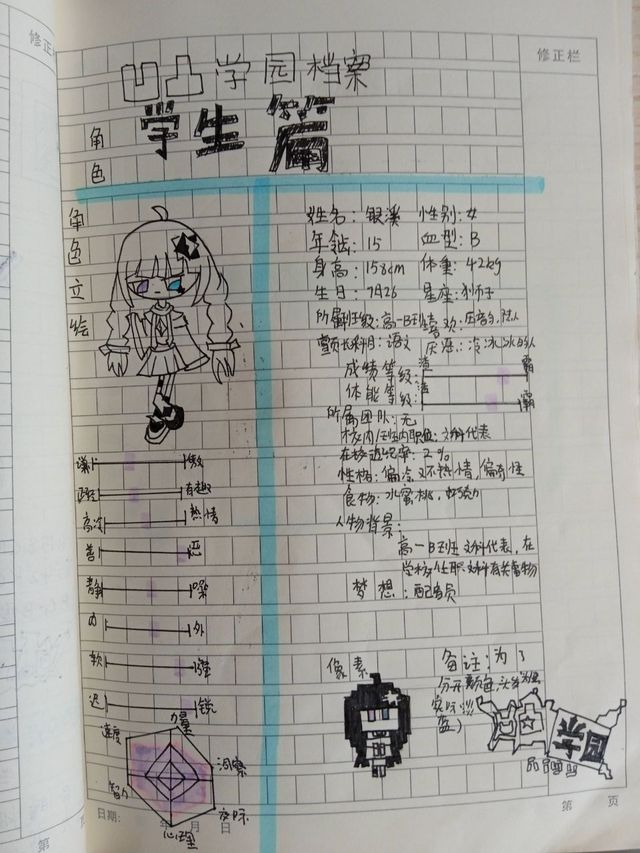 修正
修正栏
凹凸学园档案
学生篇
角色
角色立绘
姓名: 银溪 性别: 女
年龄: 15 血型: B
身高: 158cm 体重: 42kg
生日: 7月26 星座: 狮子
所属班级: 高一B班 喜欢:
擅长科目: 语文 厌恶:
成绩等级: 渣 霸
体能等级: 渣 霸
所属团队: 无
校内/班内职位: 文科代表
在校迟纪率: 2%
性格: 偏冷又不热情, 偏奇怪
食物: 水蜜桃, 巧克力
人物背景:
高一B班 文科代表, 在
学校任职文科有关事物
梦想: 配音员
谦 傲
正经 有趣
高冷 热情
善 恶
静 噪
内 外
软 硬
迟 锐
力量
速度
洞察
智力
交际
心理
像素
备注: 为了
分开颜色, 头发
实际(淡
蓝)
凹凸
学园
日期: 年 月 日
第 页
第